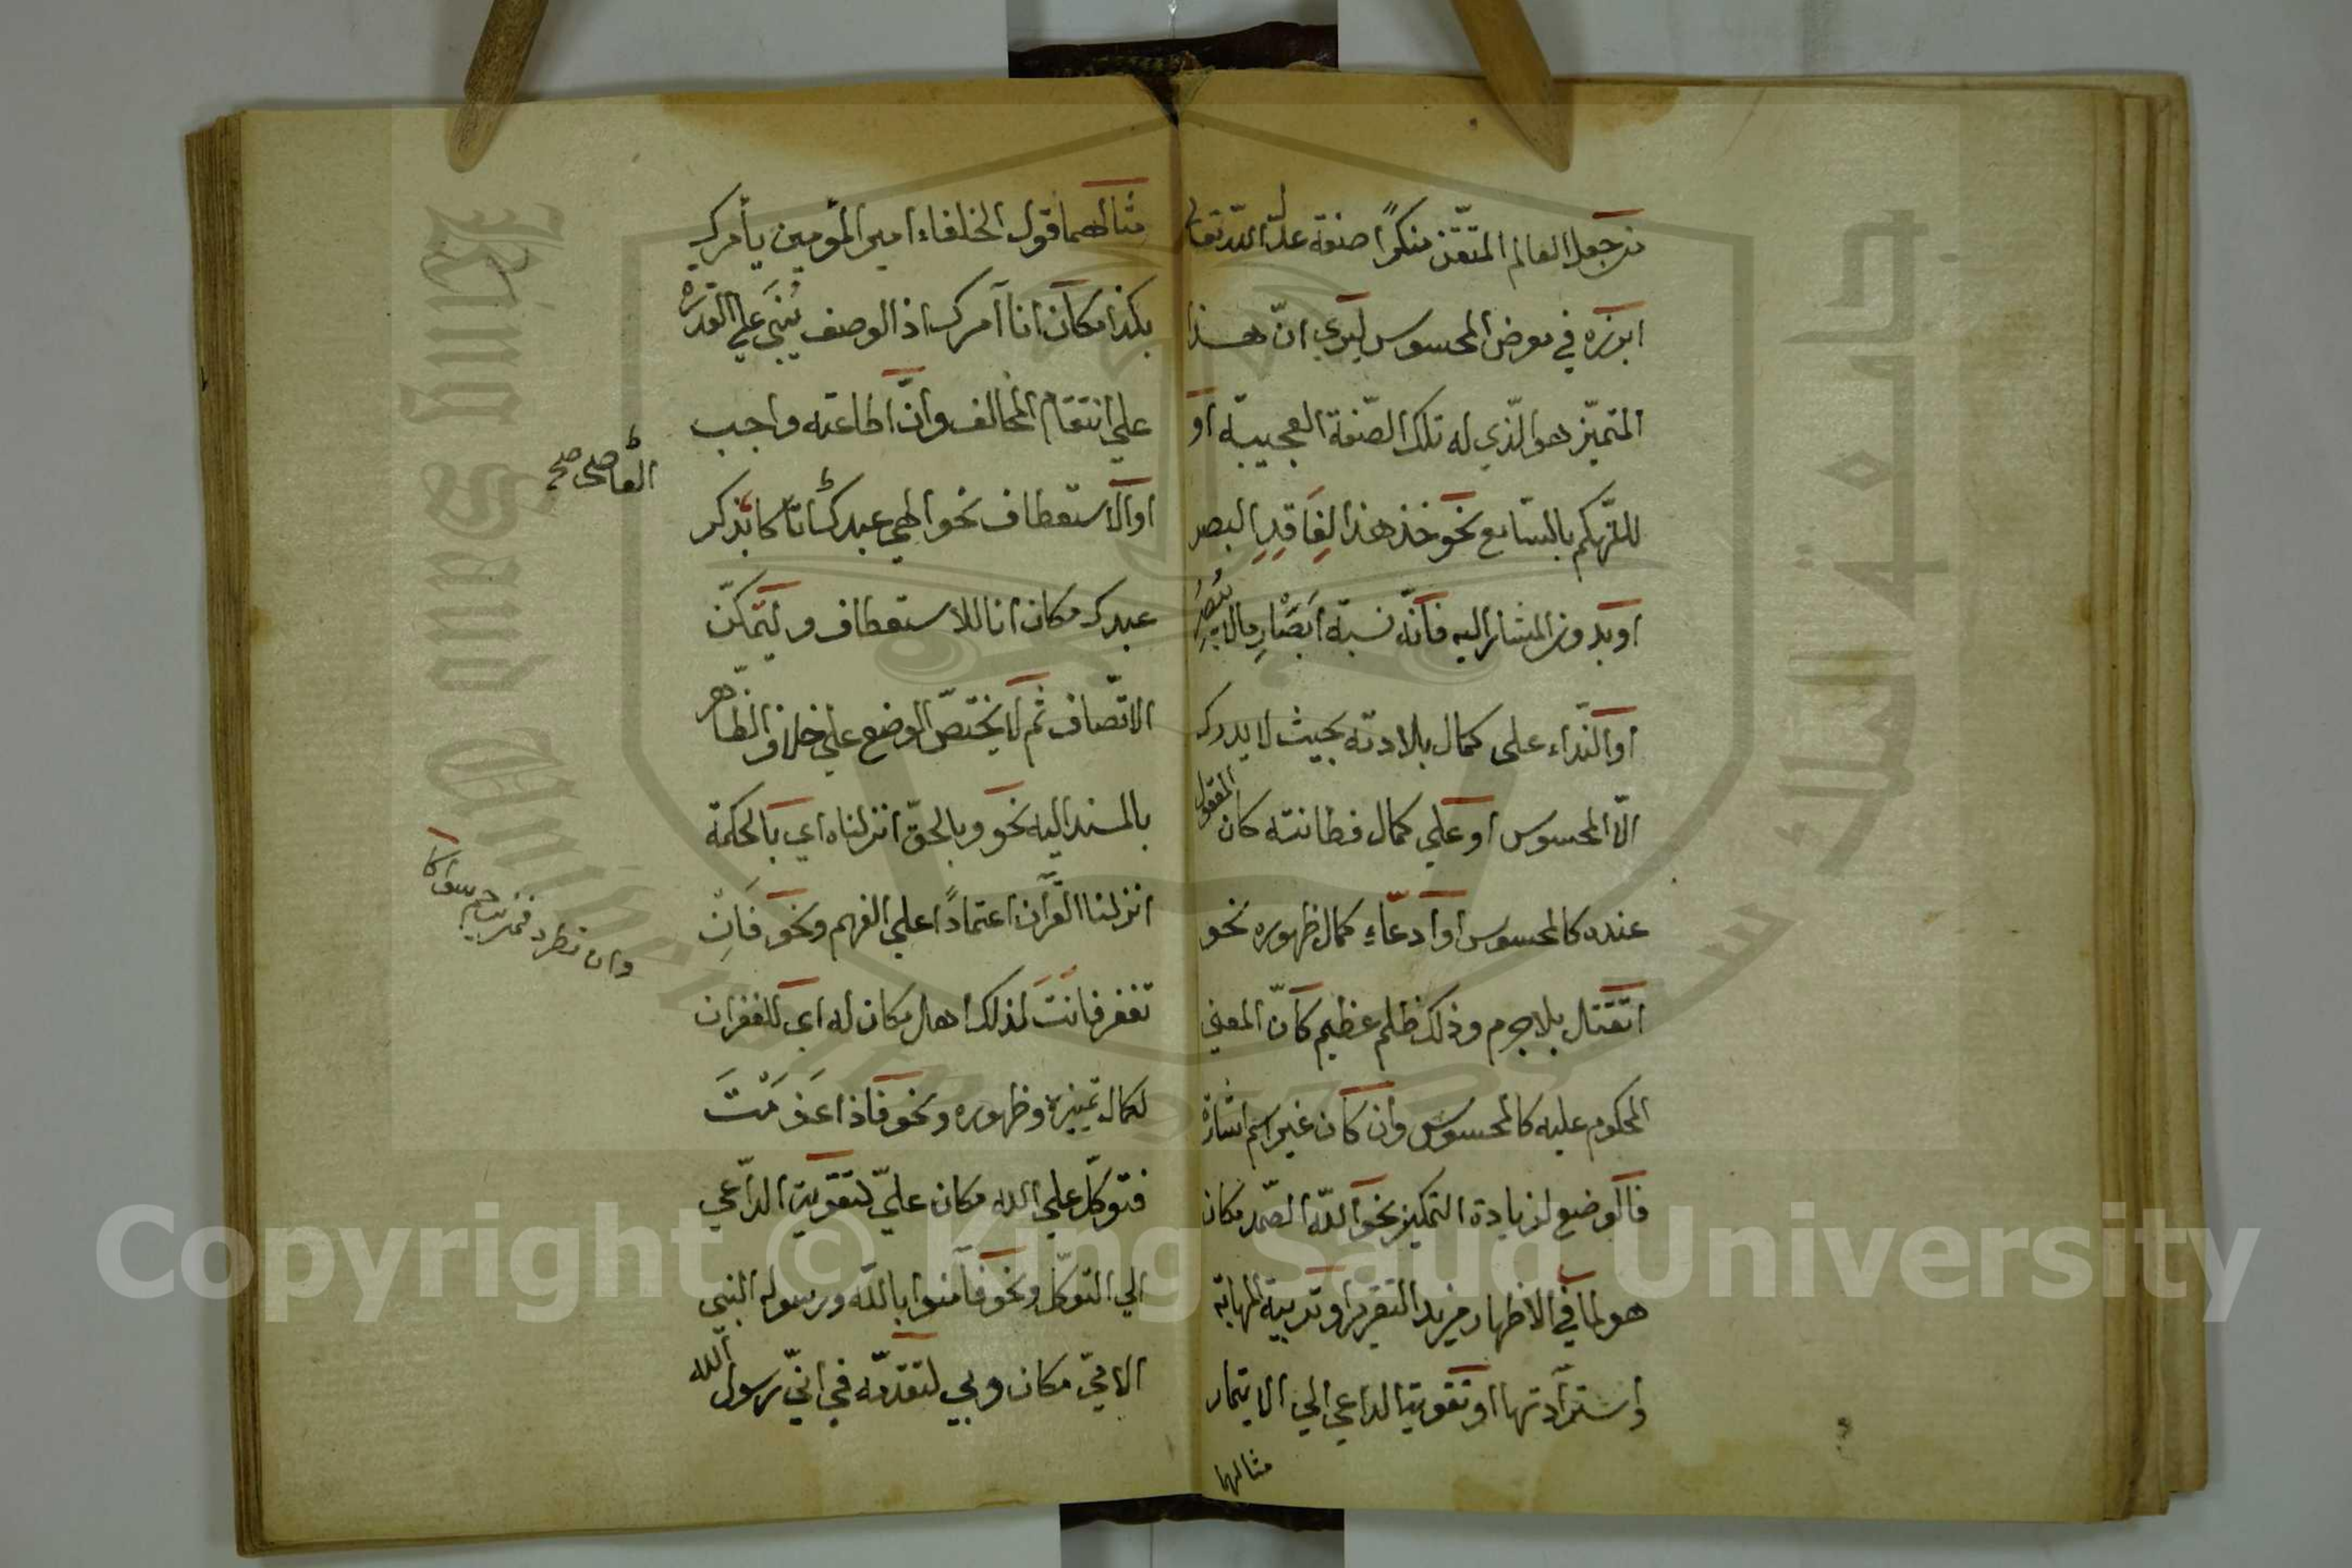 من جعل العالم المتقن منكرًا صنفة علة الله تعالى
ابرزه في معرض المحسوس ليري انّ هذا
المتميّز هو الّذي له تلك الصّفة العجيبة او
للتّهكم بالسّامع نحو خذ هذا لِفَاقِدِ البصر
او بدون المشار اليه فانّه نسبة اَبصْارِ مالا يُبْصَرُ
او النّداء على كمال بلادته بحيث لا يدرك
الّا المحسوس او علي كمال فطانته كان المعقول
عنده كالمحسوس او ادعّاءِ كمال ظهوره نحو
اتقتل بلا جرم وذلك ظلم عظيم كانّ المعني
المحكوم عليه كالمحسوس وان كان غير اسم اشارة
فالوضع لزيادة التمكين نحو اللّه الصّمد مكان
هو لما في الاظهار مزيد التقرير او تربية المهابة
واستزادتها او تقوية الداعي الي الايتمار
مثالهما
مثالهما قول الخلفاء امير المؤمين يأمرك
بكذا مكان انا آمرك اذ الوصف يُنْبَي علي القدرة
علي انتقام المخالف وانَّ اطاعته واجب
او الاستعطاف نحو الهي عبدك اتاكا بذكر
العاصي صح
عبدك مكان انا للاستعطاف وليتمكّن
الاتّصاف ثم لا يختصّ الوضع علي خلاف الظّاهر
بالمسند اليه نحو وبالحقّ انزلناه اي بالحكمة
انزلنا القرآن اعتمادًا علي الفهم ونحو فَاِنْ
وان تطرد فمن يرحم سواكا
تغفر فانتَ لذلك اهل مكان له اي للغفران
لكمال تميّزه وظهوره ونحو فاذا عَزَمْتَ
فتوكّل علي الله مكان عليّ لتقوية الدّاعي
الي التوكّل ونحو فآمنوا باللّه ورسوله النبي
الامّي مكان وبي لتقدّمه في انّي رسول اللّه
Copyright © King Saud University
King Saud University
جامعة الملك سعود
1957